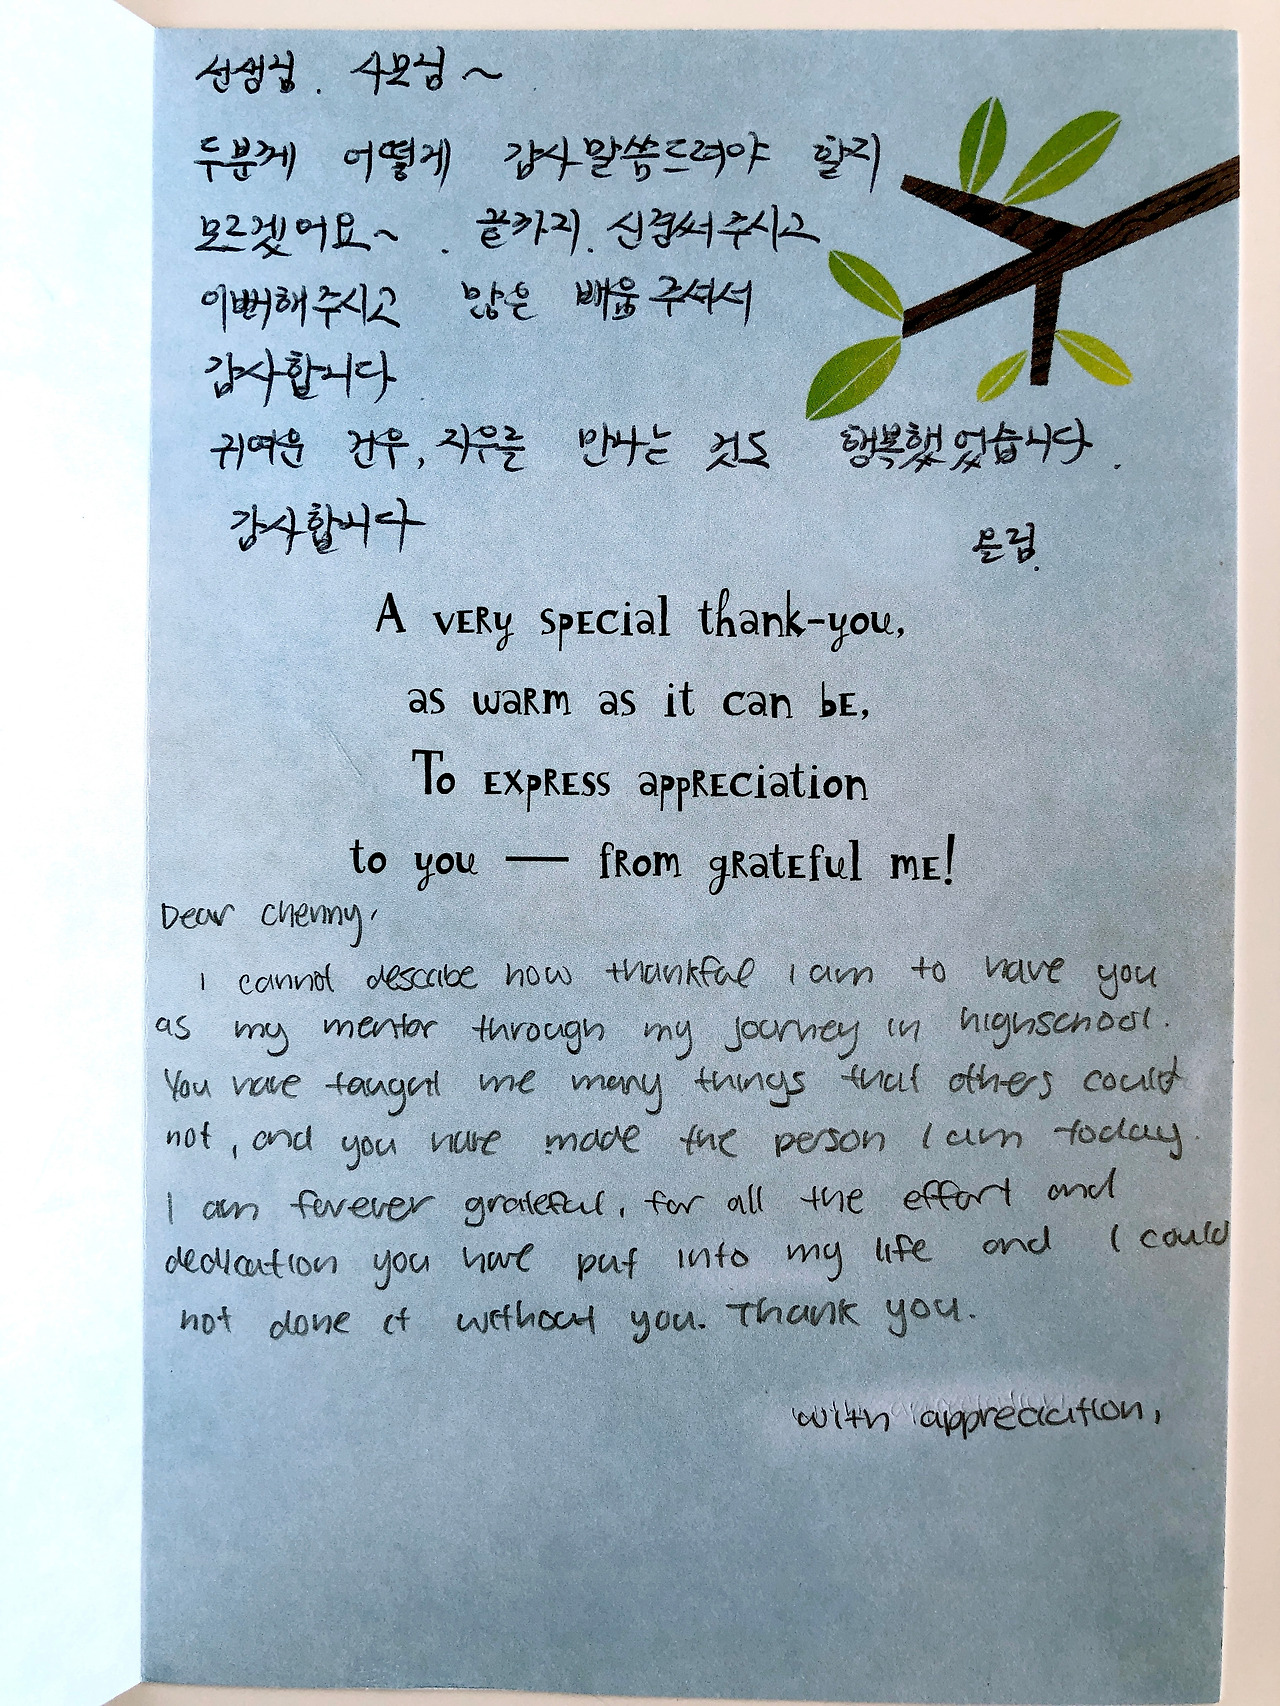 선생님. 사모님~
두분께 어떻게 감사말씀드려야 할지
모르겠어요~. 끝까지. 신경써주시고
이뻐해주시고 많은 배움 주셔서
감사합니다
귀여운 건우, 지우를 만나는 것도 행복했었습니다.
감사합니다
은림.
A very special thank-you,
as warm as it can be,
To express appreciation
to you — from grateful me!
Dear Chenny,
I cannot describe how thankful I am to have you
as my mentor through my journey in highschool.
You have taught me many things that others could
not, and you have made the person I am today.
I am forever grateful, for all the effort and
dedication you have put into my life and I could
not done it without you. Thank you.
with appreciation,